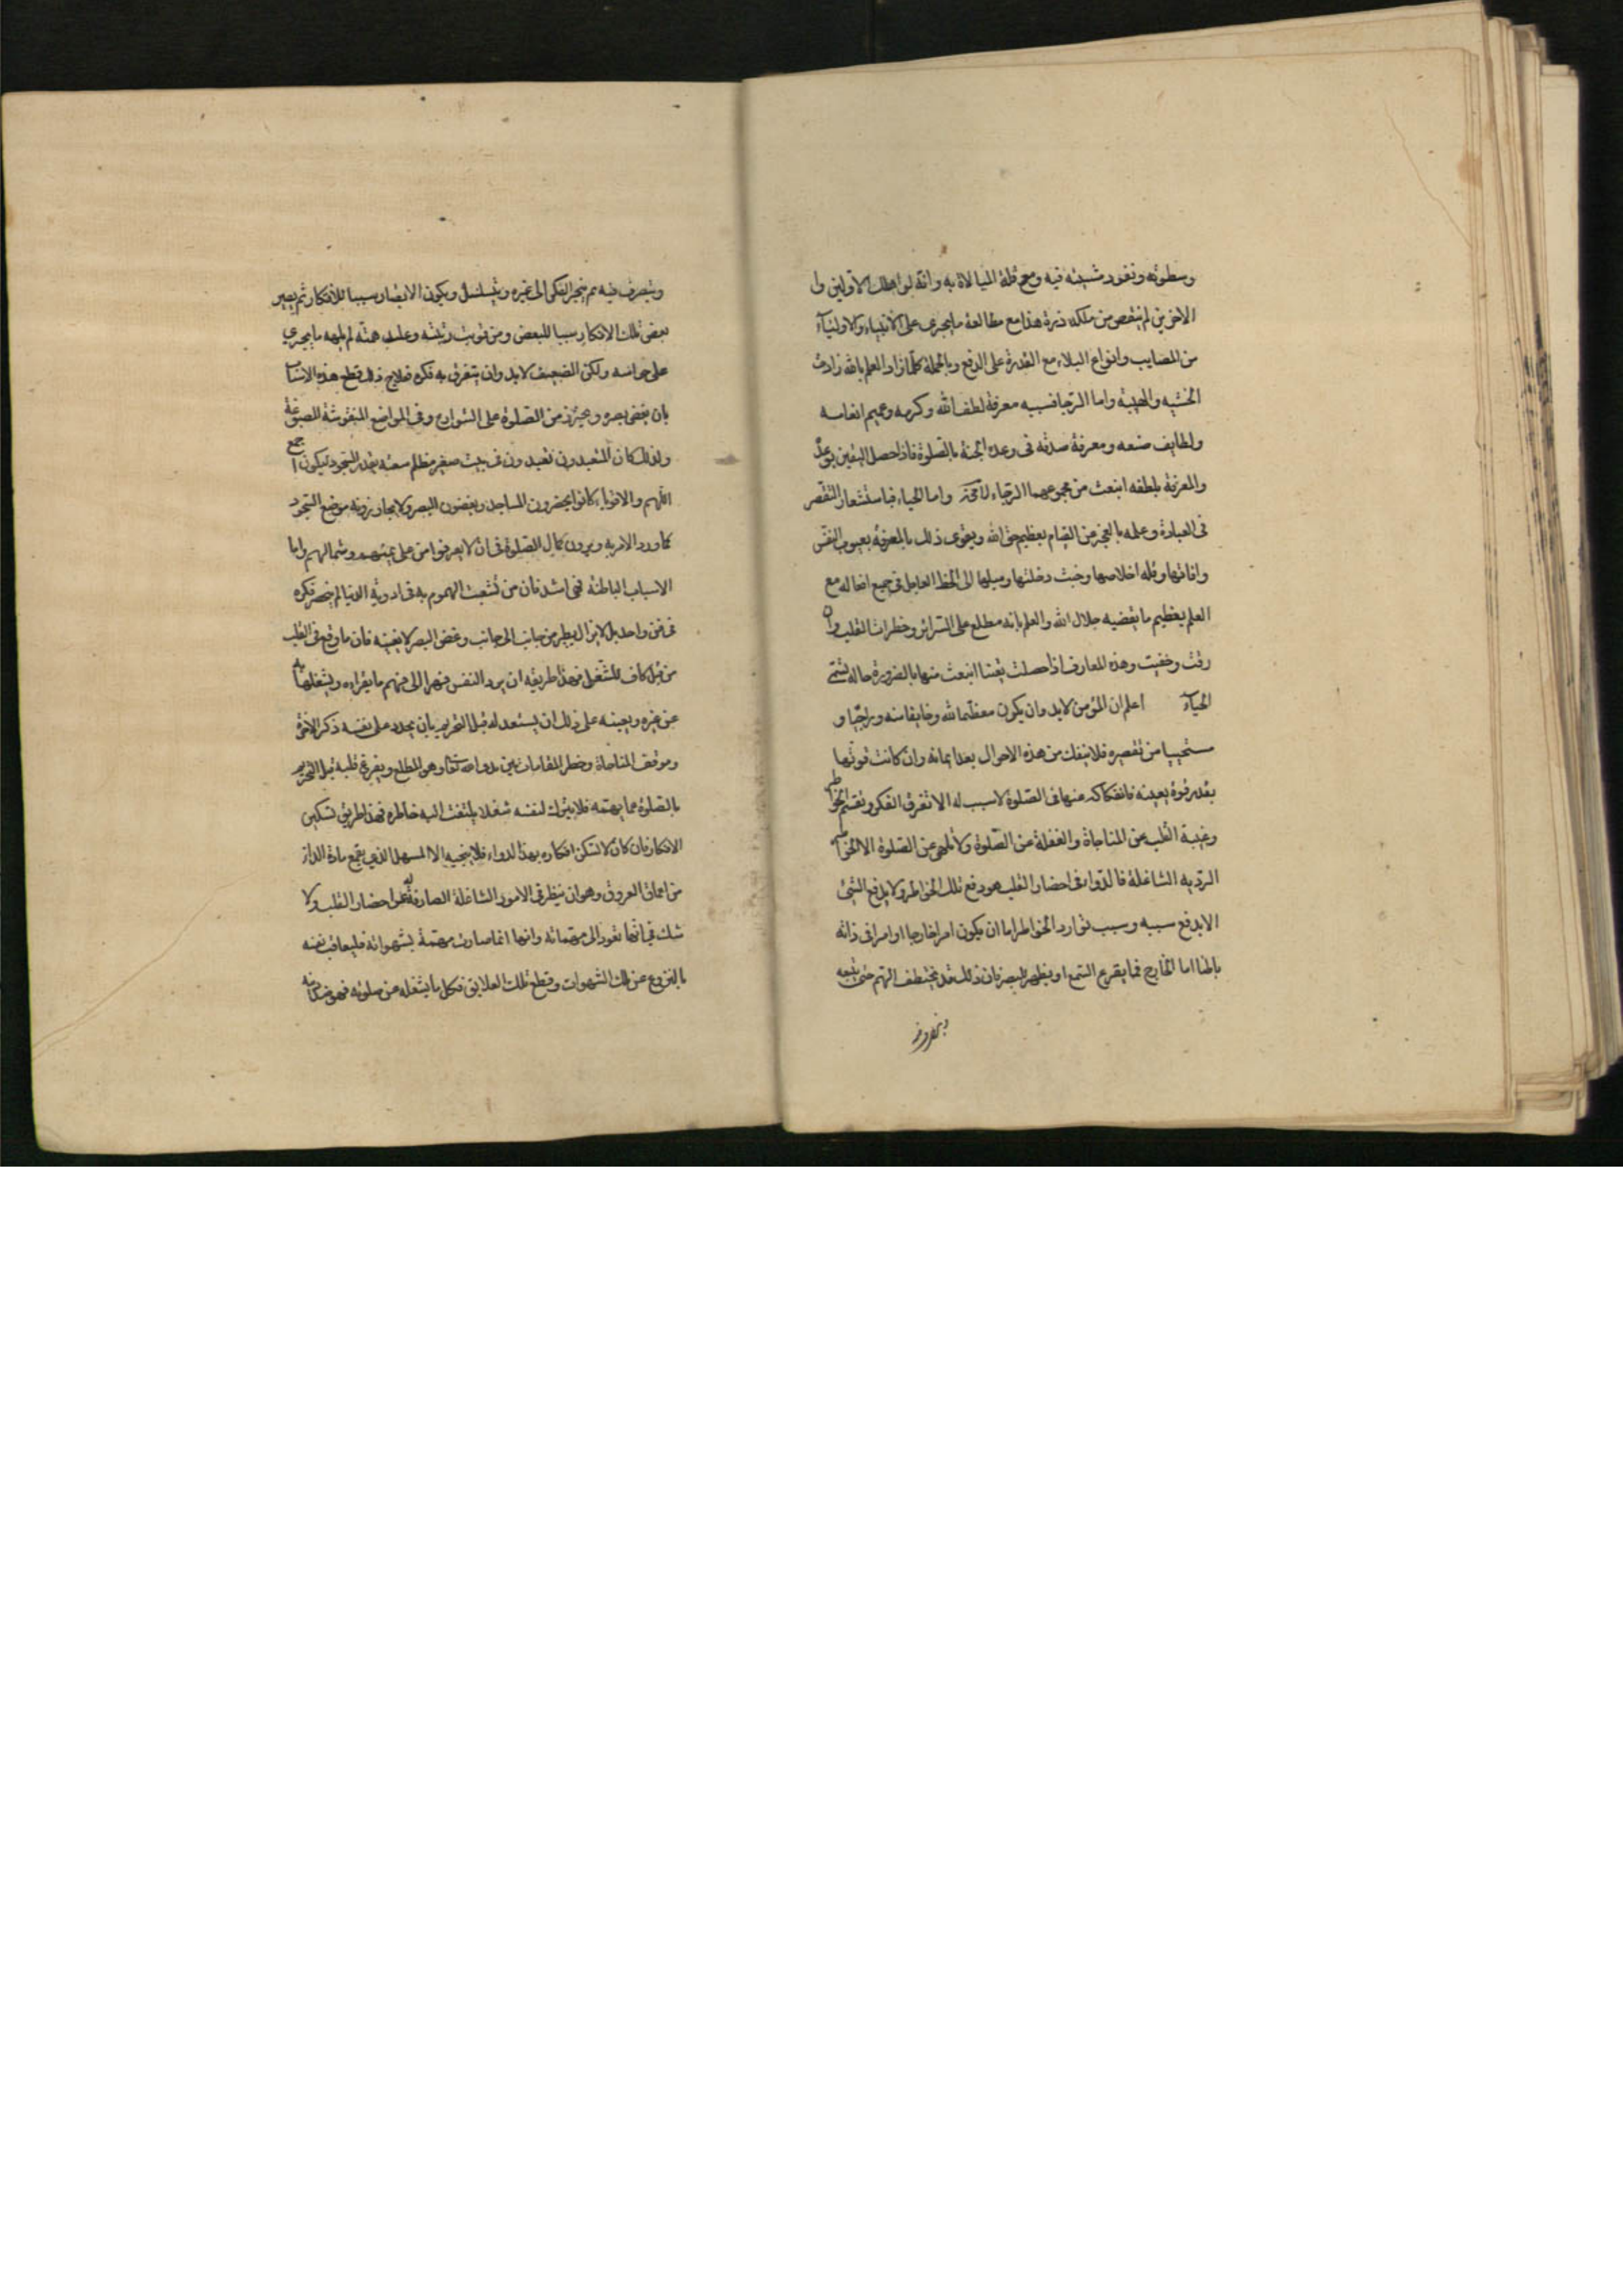 وسطوته ونفوذ مشيته فيه ومع قلة المبالاة به وانه لو اهلك الاولين وا
الاخرين لم ينقص من ملكه ذرة هذا مع مطالعة ما يجري على الانبياء والاولياء
من المصايب وانواع البلاء مع القدرة على الدفع وبالجملة كلما زاد العلم بالله زادت
الخشية والهيبة واما الرجا فسببه معرفة لطف الله وكرمه وعميم انعامه
ولطايف صنعه ومعرفة صدقه في وعده الجنة بالصلوة فاذا حصل اليقين بوعده
والمعرفة بلطفه انبعث من مجموعهما الرجاء لا محالة واما الحياء فباستشعار التقصير
في العبادة وعلمه بالعجز من القيام بعظيم حق الله ويقوى ذلك بالمعرفة بعيوب النفس
وافاتها وقلة اخلاصها وخبث دخلتها وميلها الى الحظ العاجل في جميع افعاله مع
العلم بعظيم ما يقضيه جلال الله والعلم بانه مطلع على السراير وخطرات القلب وان
دقت وخفيت وهذه المعارف اذا حصلت يقينا انبعث منها بالضرورة حالة تسمى
الحياء اعلم ان المؤمن لا بد وان يكون معظما لله وخايفا منه وراجيا و
مستحييا من تقصيره فلا ينفك من هذه الاحوال بعد ايمانه وان كانت قوتها
بقدر قوة يقينه فانفكاكه عنها في الصلوة لا سبب له الا تفرق الفكر وتقسم الخواطر
وغيبة القلب عن المناجاة والغفلة عن الصلوة ولا يلهي عن الصلوة الا الخواطر
الردية الشاغلة فالدواء في احضار القلب هو دفع تلك الخواطر ولا يدفع الشئ
الا بدفع سببه وسبب توارد الخواطر اما ان يكون امرا خارجا او امرا في ذاته
باطنا اما الخارج فما يقرع السمع او يظهر للبصر فان ذلك قد يختطف الهم حتى يتبعه
ويتصرف فيه ثم ينجر الفكر الى غيره ويتسلسل ويكون الابصار سببا للافكار ثم يصير
بعض تلك الافكار سببا للبعض ومن قويت رتبته وعلت همته لم يلهه ما يجري
على حواسه ولكن الضعيف لا بد وان يتفرق به فكره فعلاج ذلك قطع هذه الاسباب
بان يغض بصره ويحترز من الصلوة على الشوارع وفي المواضع المنقوشة المصبوغة
ولذلك كان المتعبدون يتعبدون في بيت صغير مظلم سعته بقدر السجود ليكون اجمع
للهم والاقوياء كانوا يحضرون المساجد ويغضون البصر ولا يجاوزونه موضع السجود
كما ورد الامر به ويرون كمال الصلوة في ان لا يعرفوا من على يمينهم وشمالهم واما
الاسباب الباطنة فهي اشد فان من تشعبت الهموم به في اودية الدنيا لم ينحصر فكره
في فن واحد بل لا يزال يطير من جانب الى جانب وغض البصر لا يغنيه فان ما وقع في القلب
من قبل كاف للشغل فهذا طريقه ان يرد النفس قهرا الى فهم ما يقراءه ويشغلها به
عن غيره ويعينه على ذلك ان يستعد له قبل التحريم بان يجدد على نفسه ذكر الاخرة
وموقف المناجاة وخطر المقام بين يدي الله تعالى وهو المطلع ويفرغ قلبه قبل التحريم
بالصلوة عما يهمه فلا يترك لنفسه شغلا يلتفت اليه خاطره فهذا طريق تسكين
الافكار فان كان لا تسكن افكاره بهذا الدواء فلا ينجيه الا المسهل الذي يقمع مادة الداء
من اعماق العروق وهو ان ينظر في الامور الشاغلة الصارفة له عن احضار القلب ولا
شك في انها تعود الى مهماته وانها انما صارت مهمة بشهواته فليعاقب نفسه
بالنزوع عن تلك الشهوات وقطع تلك العلايق فكل ما يشغله عن صلوته فهو ضد دينه